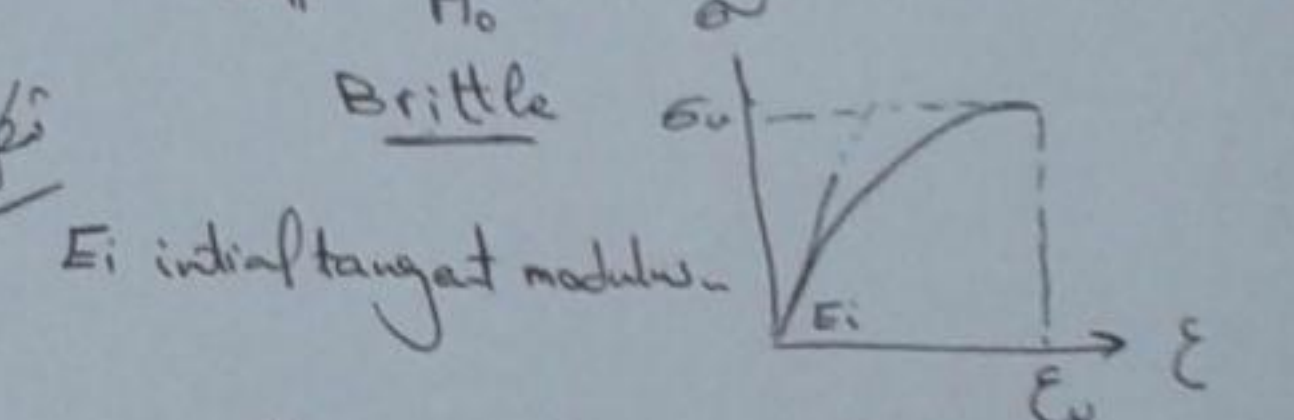 H₀
σ
Brittle
σu
Ei intial tangat modulus.
Ei
ε
εu